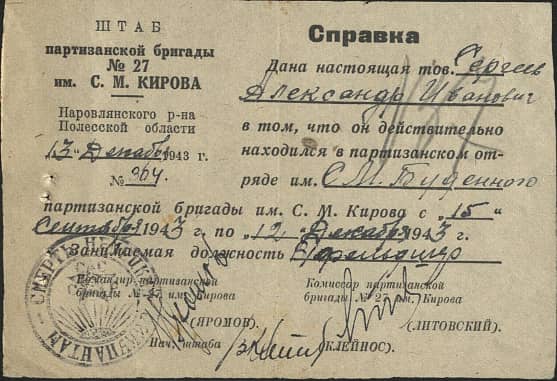 ШТАБ
партизанской бригады
№ 27
им. С. М. КИРОВА
Наровлянского р-на
Полесской области
13 Декабря 1943 г.
№ 364
Справка
Дана настоящая тов.
Александр Иванович
в том, что он действительно
находился в партизанском от-
ряде им. С. М. Буденного
партизанской бригады им. С. М. Кирова с „15“
Сентября 1943 г. по „12“ Декабря 1943 г.
Занимаемая должность
Командир партизанской
бригады № 27 им. Кирова
(ЯРОМОВ).
Нач. штаба
(КЛЕЙНОС).
Комиссар партизанской
бригады № 27 им. Кирова
(ЛИТОВСКИЙ).
СМЕРТЬ НЕМЕЦКИМ ОККУПАНТАМ